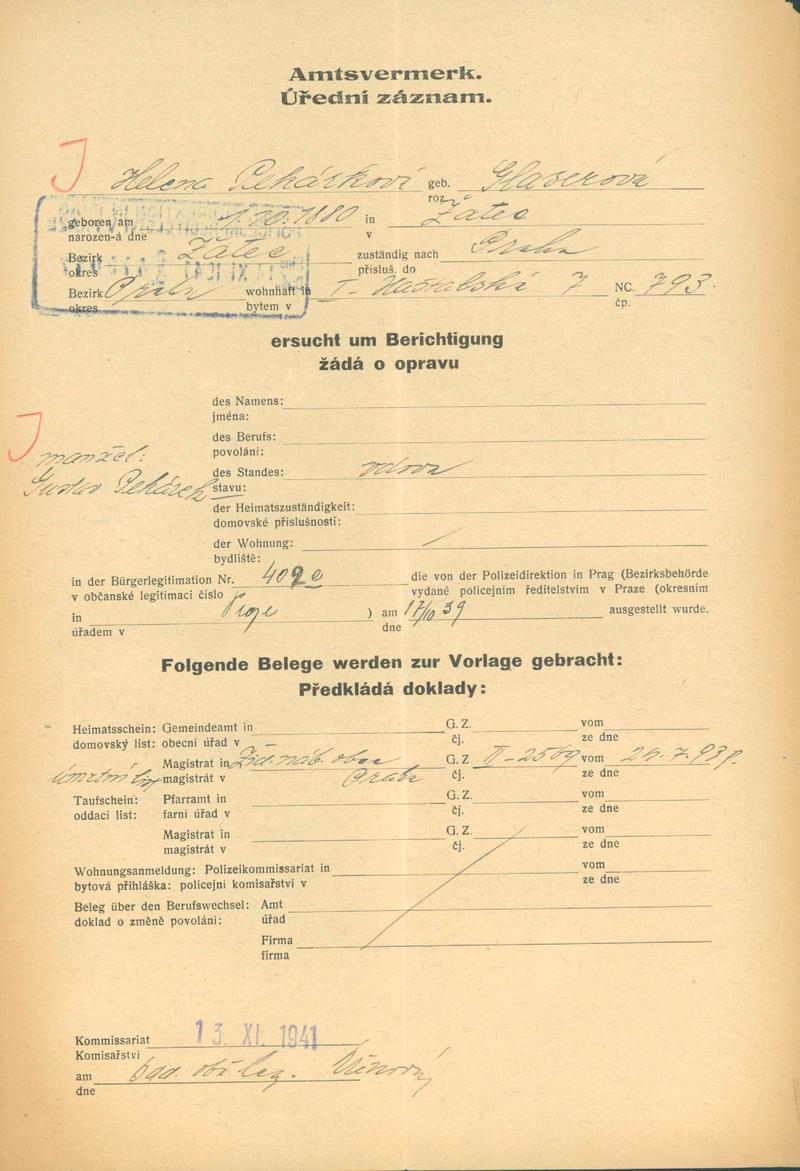 Amtsvermerk.
Úřední záznam.
J Helena Pekárková geb. Glaserová
roz.
geboren am 1.10.1880 in Žatec
narozen-á dne v
Bezirk Žatec zuständig nach Praha
okres přísluš. do
Bezirk Praha wohnhaft in I- Haštalská 7 NC. 793.
okres bytem v čp.
ersucht um Berichtigung
žádá o opravu
des Namens:
jména:
des Berufs:
povolání:
J manžel: des Standes: vdova
Gustav Pekárek stavu:
der Heimatszuständigkeit:
domovské příslušnosti:
der Wohnung:
bydliště:
in der Bürgerlegitimation Nr. die von der Polizeidirektion in Prag (Bezirksbehörde
v občanské legitimaci číslo vydané policejním ředitelstvím v Praze (okresním
in Praze ) am 17/10 39 ausgestellt wurde.
úřadem v dne
Folgende Belege werden zur Vorlage gebracht:
Předkládá doklady:
Heimatsschein: Gemeindeamt in G. Z. vom
domovský list: obecní úřad v čj. ze dne
Magistrat in Žid. náb. obec G. Z II-2569 vom
úmrtní list magistrát v Praha čj. ze dne
Taufschein: Pfarramt in G. Z. vom
oddací list: farní úřad v čj. ze dne
Magistrat in G. Z. vom
magistrát v čj. ze dne
Wohnungsanmeldung: Polizeikommissariat in vom
bytová přihláška: policejní komisařství v ze dne
Beleg über den Berufswechsel: Amt
doklad o změně povolání: úřad
Firma
firma
Kommissariat 13. XI. 1941
Komisařství
am odd. obč. leg.
dne